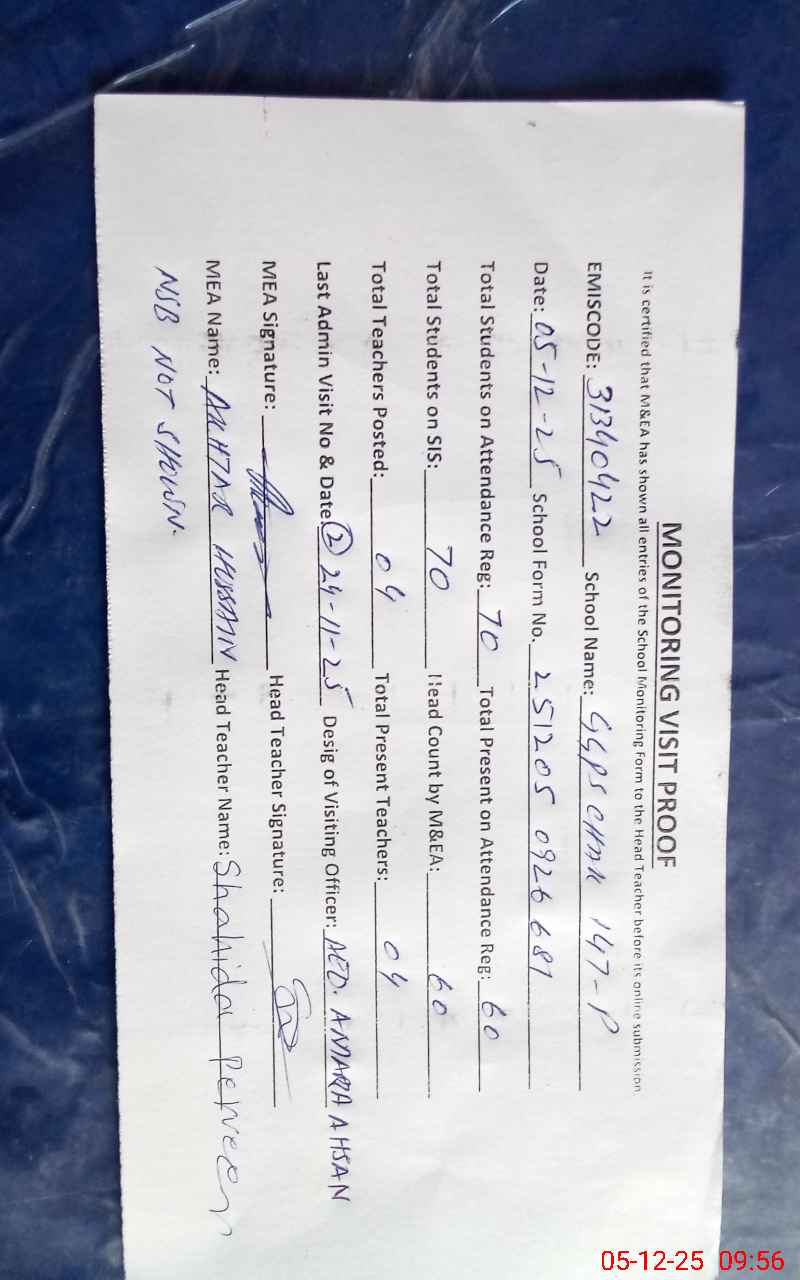 MONITORING VISIT PROOF
It is certified that M&EA has shown all entries of the School Monitoring Form to the Head Teacher before its online submission
EMISCODE: 31340422 School Name: GGPS CHAK 147-P
Date: 05-12-25 School Form No. 251205 0926 681
Total Students on Attendance Reg: 70 Total Present on Attendance Reg: 60
Total Students on SIS: 70 Head Count by M&EA: 60
Total Teachers Posted: 04 Total Present Teachers: 04
Last Admin Visit No & Date: 2 24-11-25 Desig of Visiting Officer: AEO. AMARA AHSAN
MEA Signature: Head Teacher Signature:
MEA Name: AKHTAR HUSSAIN Head Teacher Name: Shahida Perveen
NSB NOT SHOWN.
05-12-25 09:56